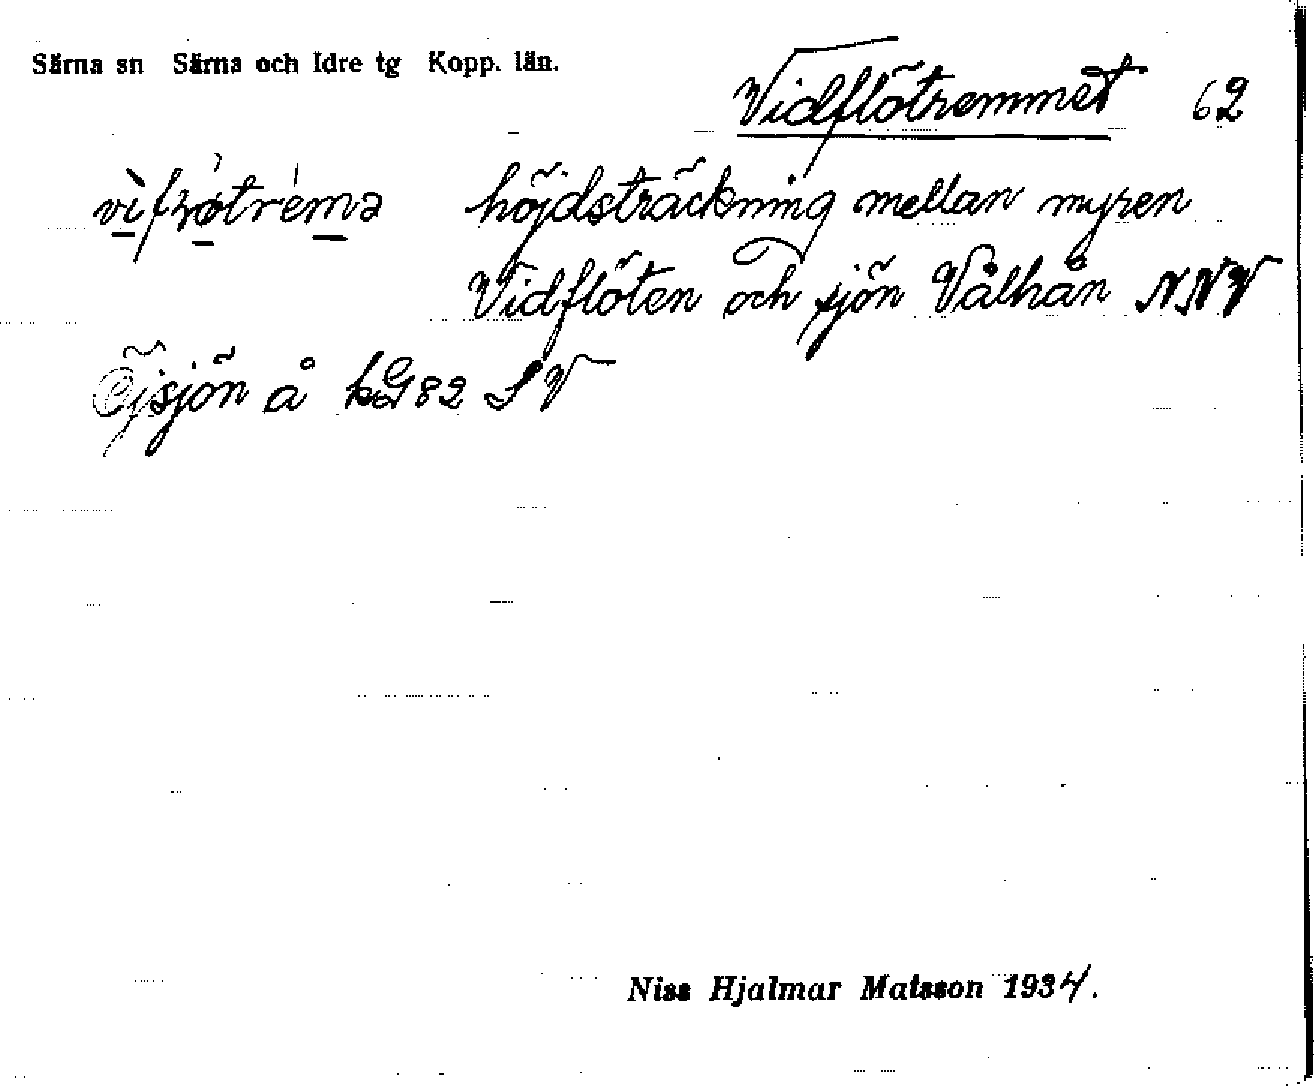 Särna sn Särna och Idre tg Kopp. län.
Vidflötremmet 62
höjdsträckning mellan myren
Vidflöten och sjön Vålhån NNV
Öjsjön å 82 SV
Niss Hjalmar Matsson 1934.